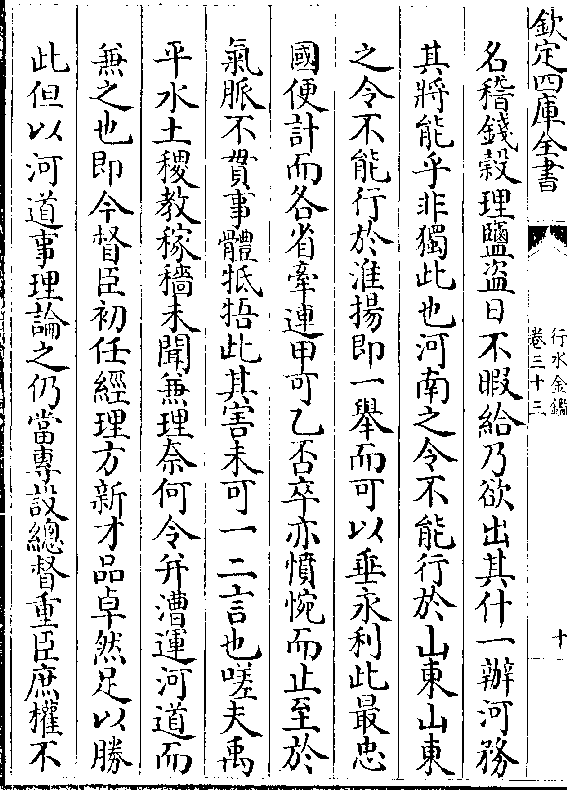 欽定四庫全書
行水金鑑
卷三十三
十
名稽錢穀理鹽盜日不暇給乃欲出其什一辦河務
其將能乎非獨此也河南之令不能行於山東山東
之令不能行於淮揚即一舉而可以垂永利此最忠
國便計而各省牽連甲可乙否卒亦憤惋而止至於
氣脈不貫事體牴牾此其害未可一二言也嗟夫禹
平水土稷教稼穡未聞兼理奈何令并漕運河道而
兼之也即今督臣初任經理方新才品卓然足以勝
此但以河道事理論之仍當專設總督重臣庶權不